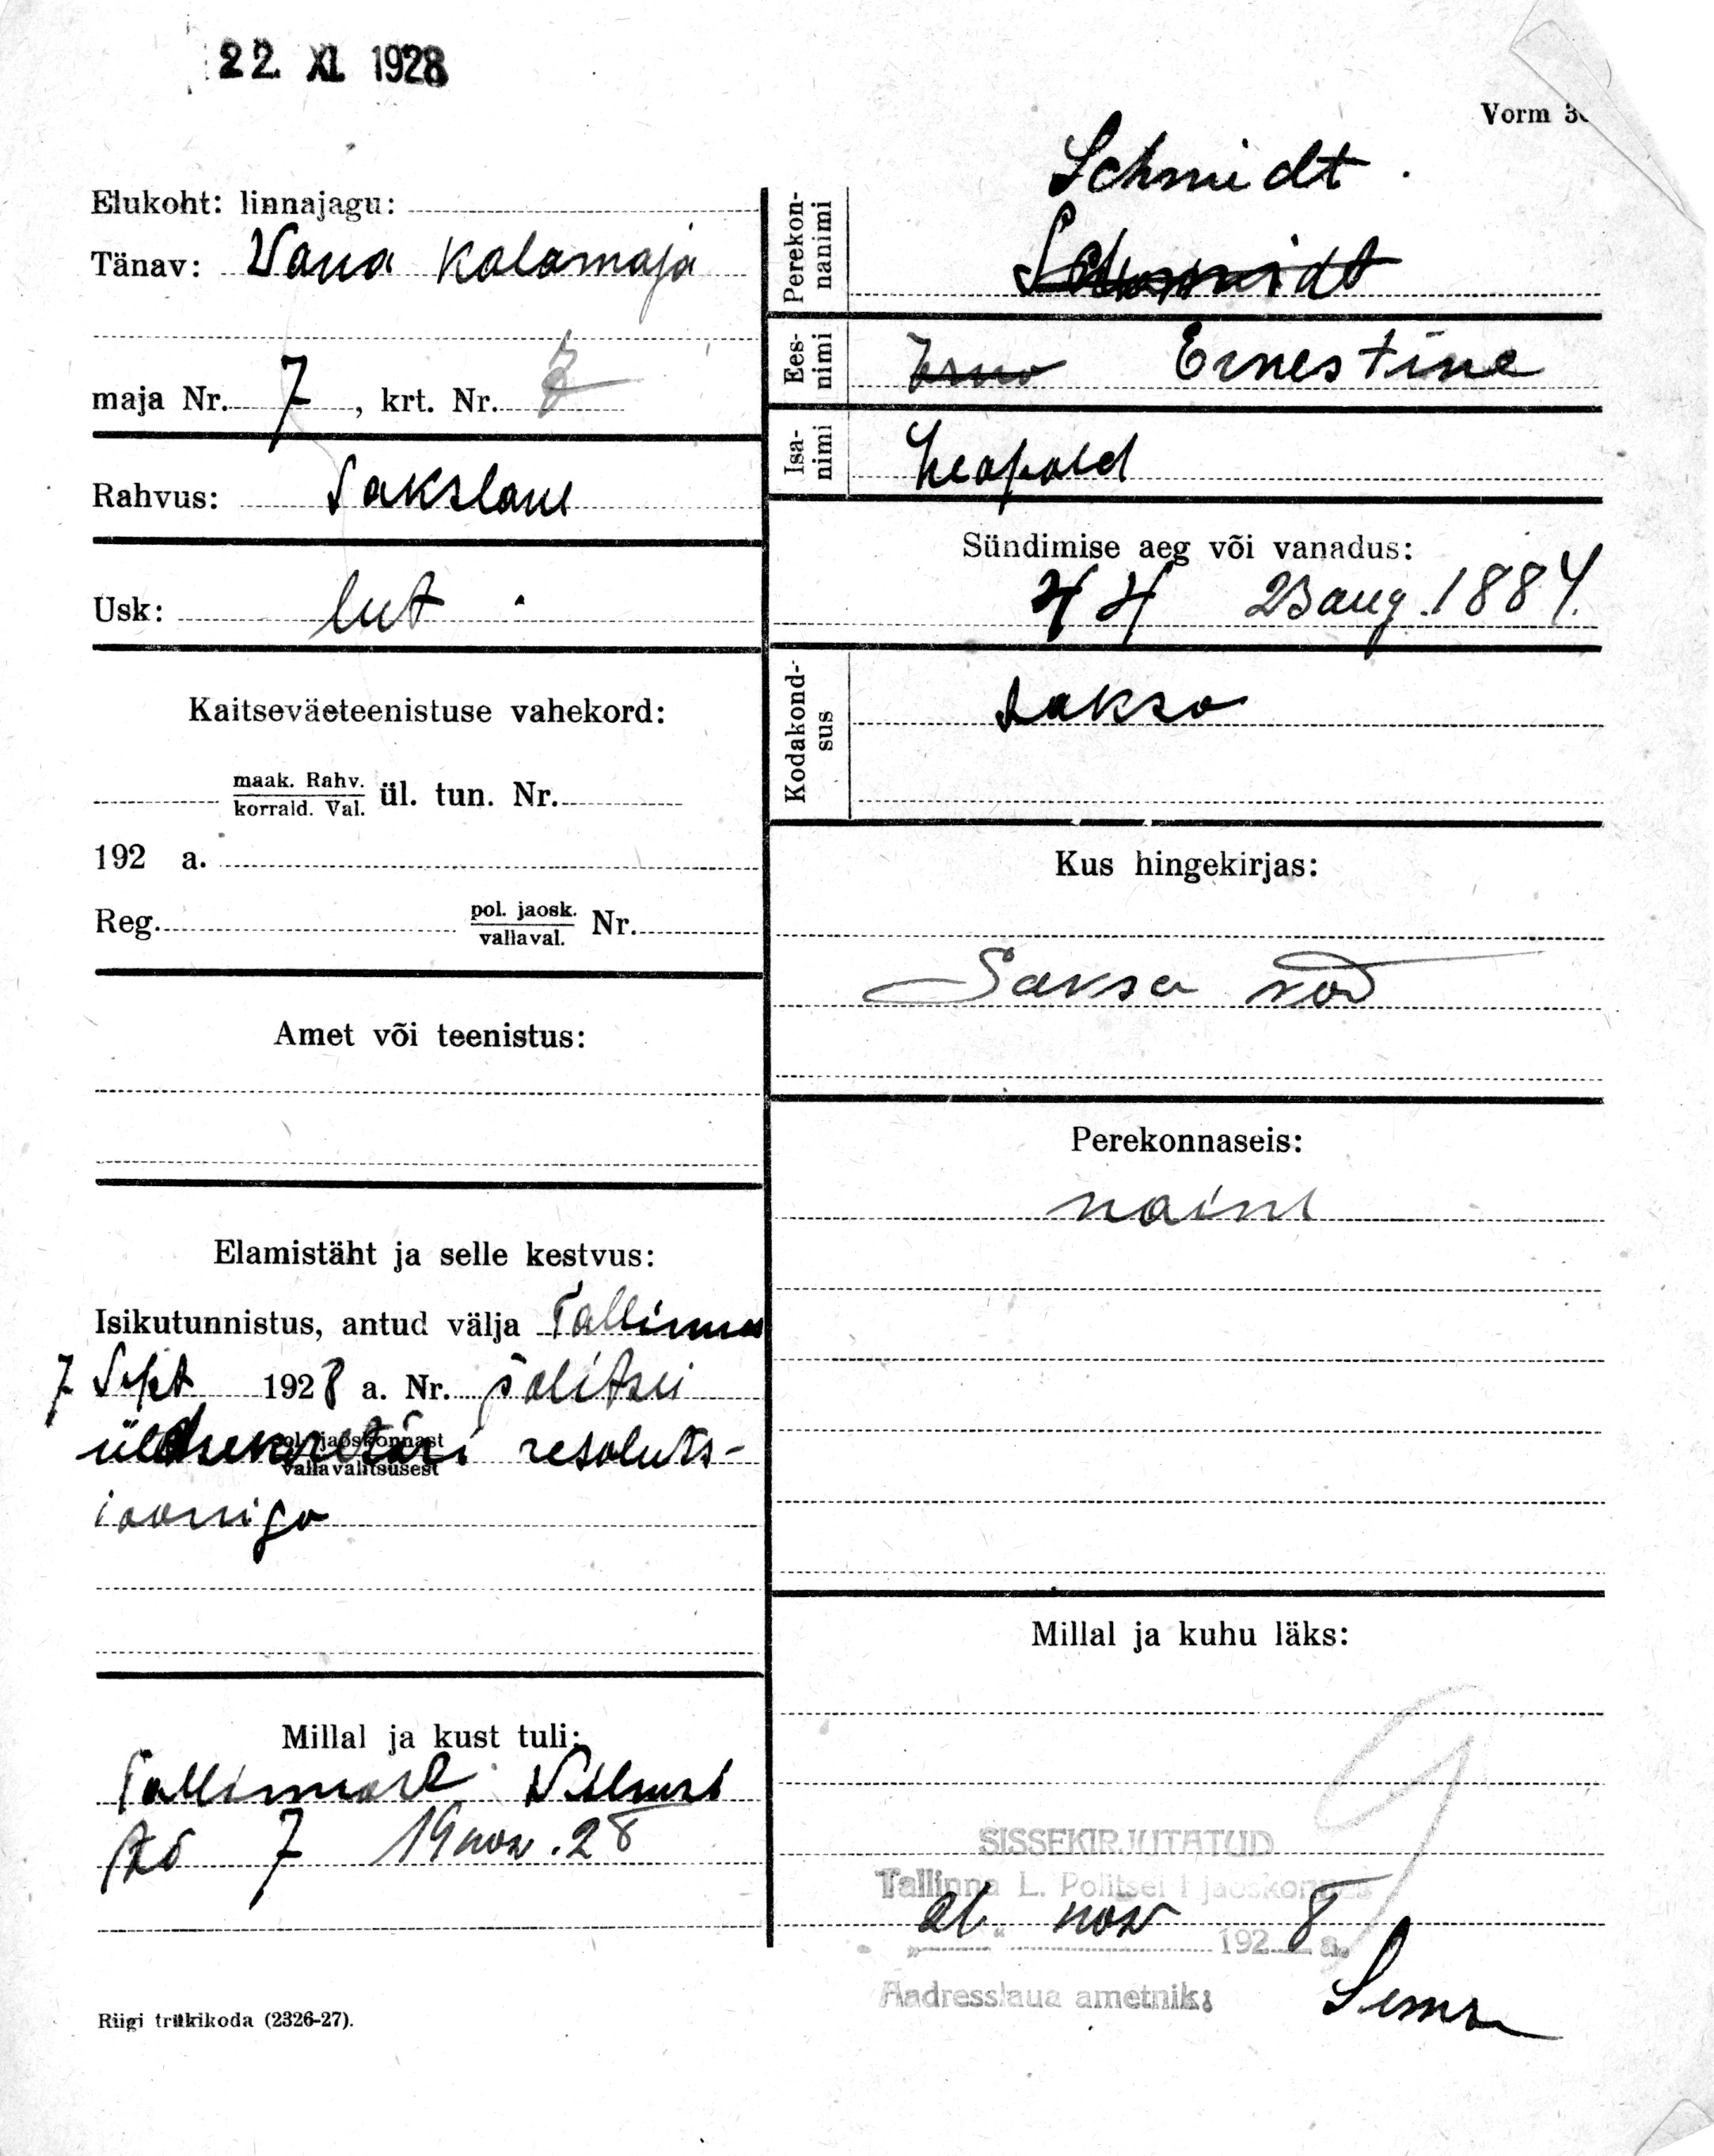 22. XI. 1928
Vorm
Elukoht: linnajagu:
Tänav: Vana Kalamaja
maja Nr. 7, krt. Nr. 7
Rahvus: Sakslane
Usk: lut.
Kaitseväeteenistuse vahekord:
maak. Rahv.
korrald. Val.
ül. tun. Nr.
192 a.
Reg. pol. jaosk. Nr.
vallaval.
Amet või teenistus:
Elamistäht ja selle kestvus:
Isikutunnistus, antud välja Tallinnas
7 Sept 1928 a. Nr. politsei
pol. jaoskonnast
vallavalitsusest
üldsekretäri resoluts-
iooniga
Millal ja kust tuli:
Tallinnast Vilmsi
7 19 nov. 28
Riigi trükikoda (2326-27).
Schmidt.
Perekon-
nanimi
Schmidt
Ees-
nimi
Ernestine
Isa-
nimi
Leopold
Sündimise aeg või vanadus:
44 23 aug. 1884.
Kodakond-
sus
Saksa
Kus hingekirjas:
Saksa
Perekonnaseis:
naine
Millal ja kuhu läks:
SISSEKIRJUTATUD
Tallinna L. Politsei I jaoskonnas
21 nov 1928 a.
Aadresslaua ametnik: